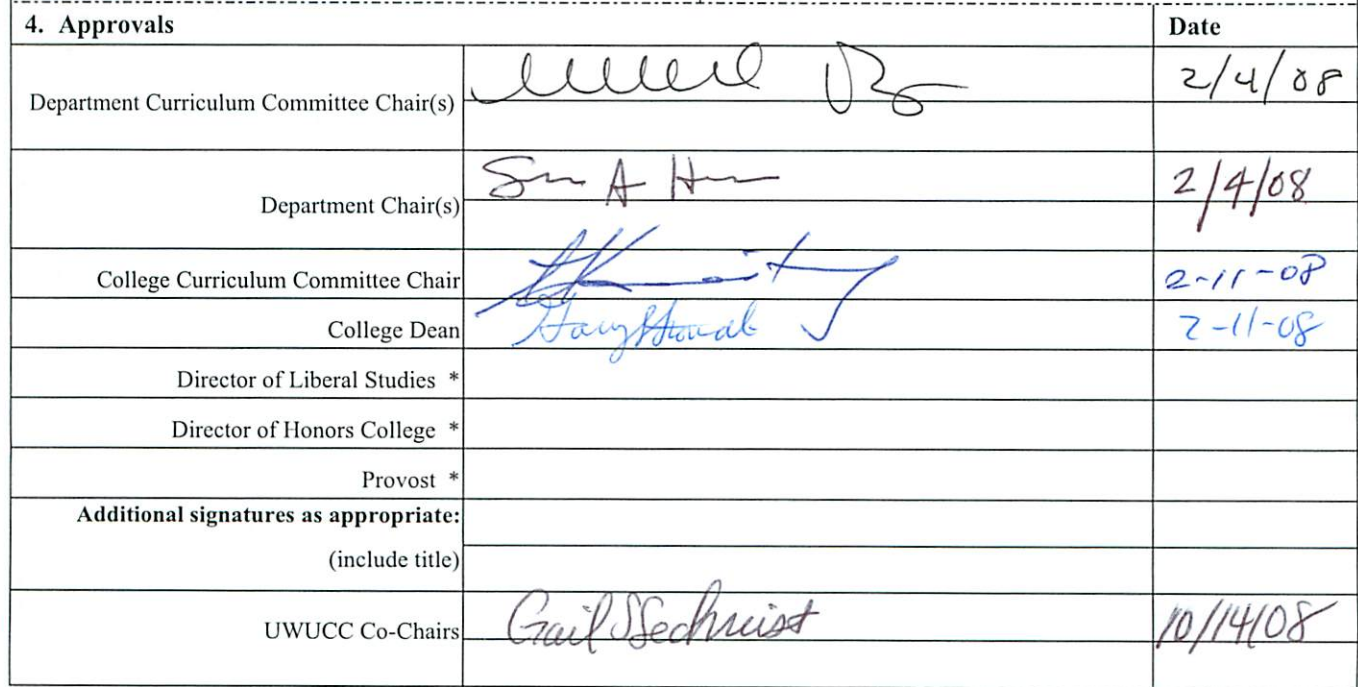 4. Approvals Date
Department Curriculum Committee Chair(s) 2/4/08
Department Chair(s) 2/4/08
College Curriculum Committee Chair 2-11-08
College Dean 2-11-08
Director of Liberal Studies *
Director of Honors College *
Provost *
Additional signatures as appropriate:
(include title)
UWUCC Co-Chairs Gail S Sechrist 10/14/08